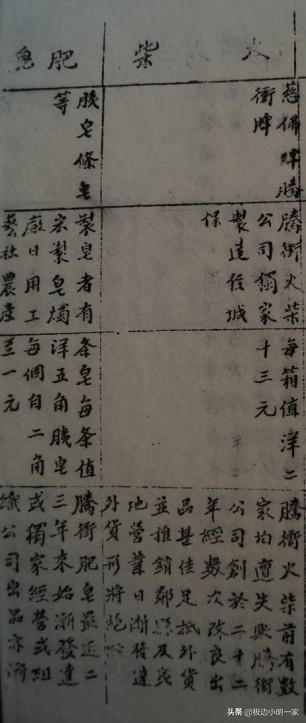 火柴
慈佛牌騰
衝牌
騰衝火柴
公司獨家
製造住城
保
每箱值洋二
十三元
騰衝火柴前有數
家均遭失敗騰衝
公司創於二十二
年經數次改良出
品甚佳足抵外貨
並推銷鄰縣及
地營業日漸發達
外貨形將絕
肥皂
胰皂條皂
等
製皂者有
宏製皂燭
廠日用工
藝社農產
条皂每条值
洋五角胰皂
每個自二角
至一元
騰衝肥皂最近二
三年來始漸發達
或獨家經營或組
織公司出品亦漸
頭条 @极边小明一家